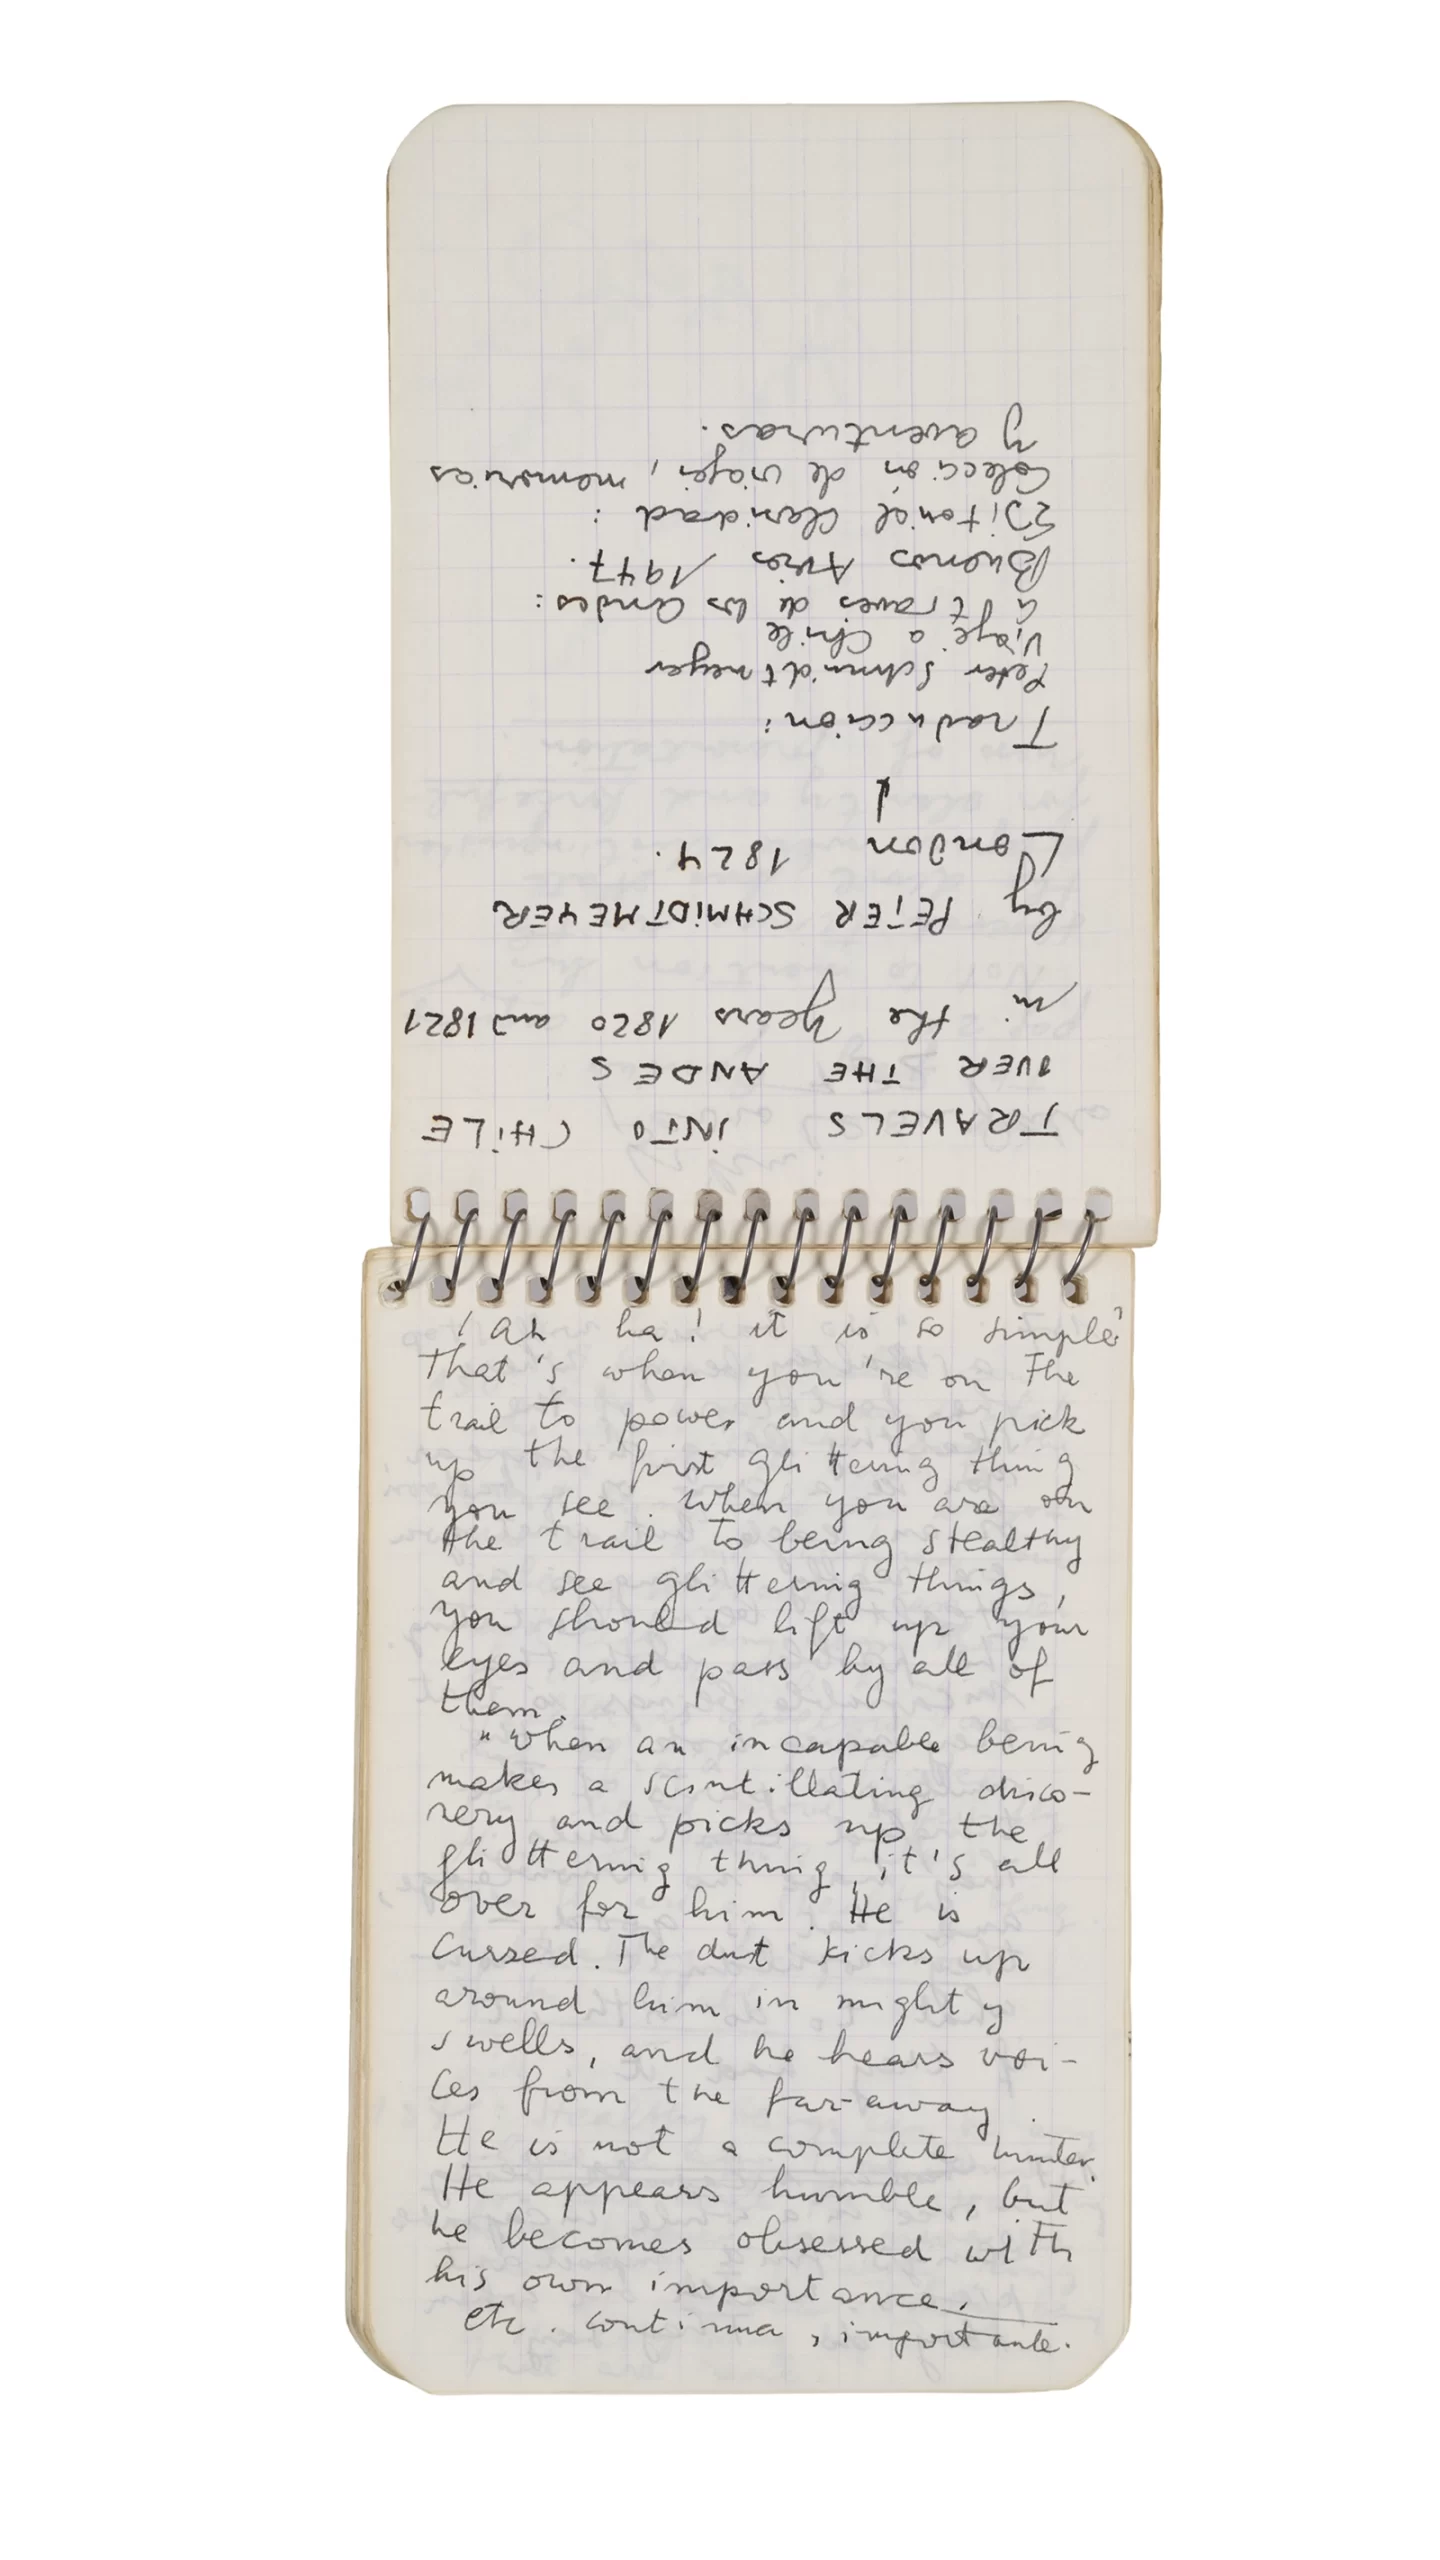 TRAVELS INTO CHILE
OVER THE ANDES
in the years 1820 and 1821
by PETER SCHMIDTMEYER
London 1824.
↓
Traduccion:
Peter Schmidtmeyer
Viaje a Chile
a traves de los Andes:
Buenos Aires, 1947.
Editorial Claridad:
Colección de viajes, memorias
y aventuras.
! ah ha! it is so simple?
That's when you're on the
trail to power and you pick
up the first glittering thing
you see. When you are on
the trail to being stealthy
and see glittering things,
you should lift up your
eyes and pass by all of
them.
"When an incapable being
makes a scintillating disco-
very and picks up the
glittering thing, it's all
over for him. He is
cursed. The dust kicks up
around him in mighty
swells, and he hears voi-
ces from the far-away.
He is not a complete hunter.
He appears humble, but
he becomes obsessed with
his own importance.
etc. continua, importante.